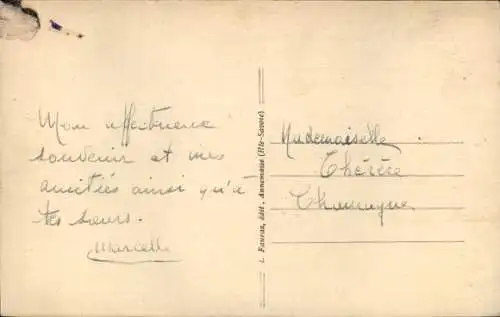 Mon affectueux
souvenir et mes
amitiés ainsi qu'à
tes sœurs.
Marcelle
L. Fauraz, édit., Annemasse (Hte-Savoie)
Mademoiselle
Thérèse